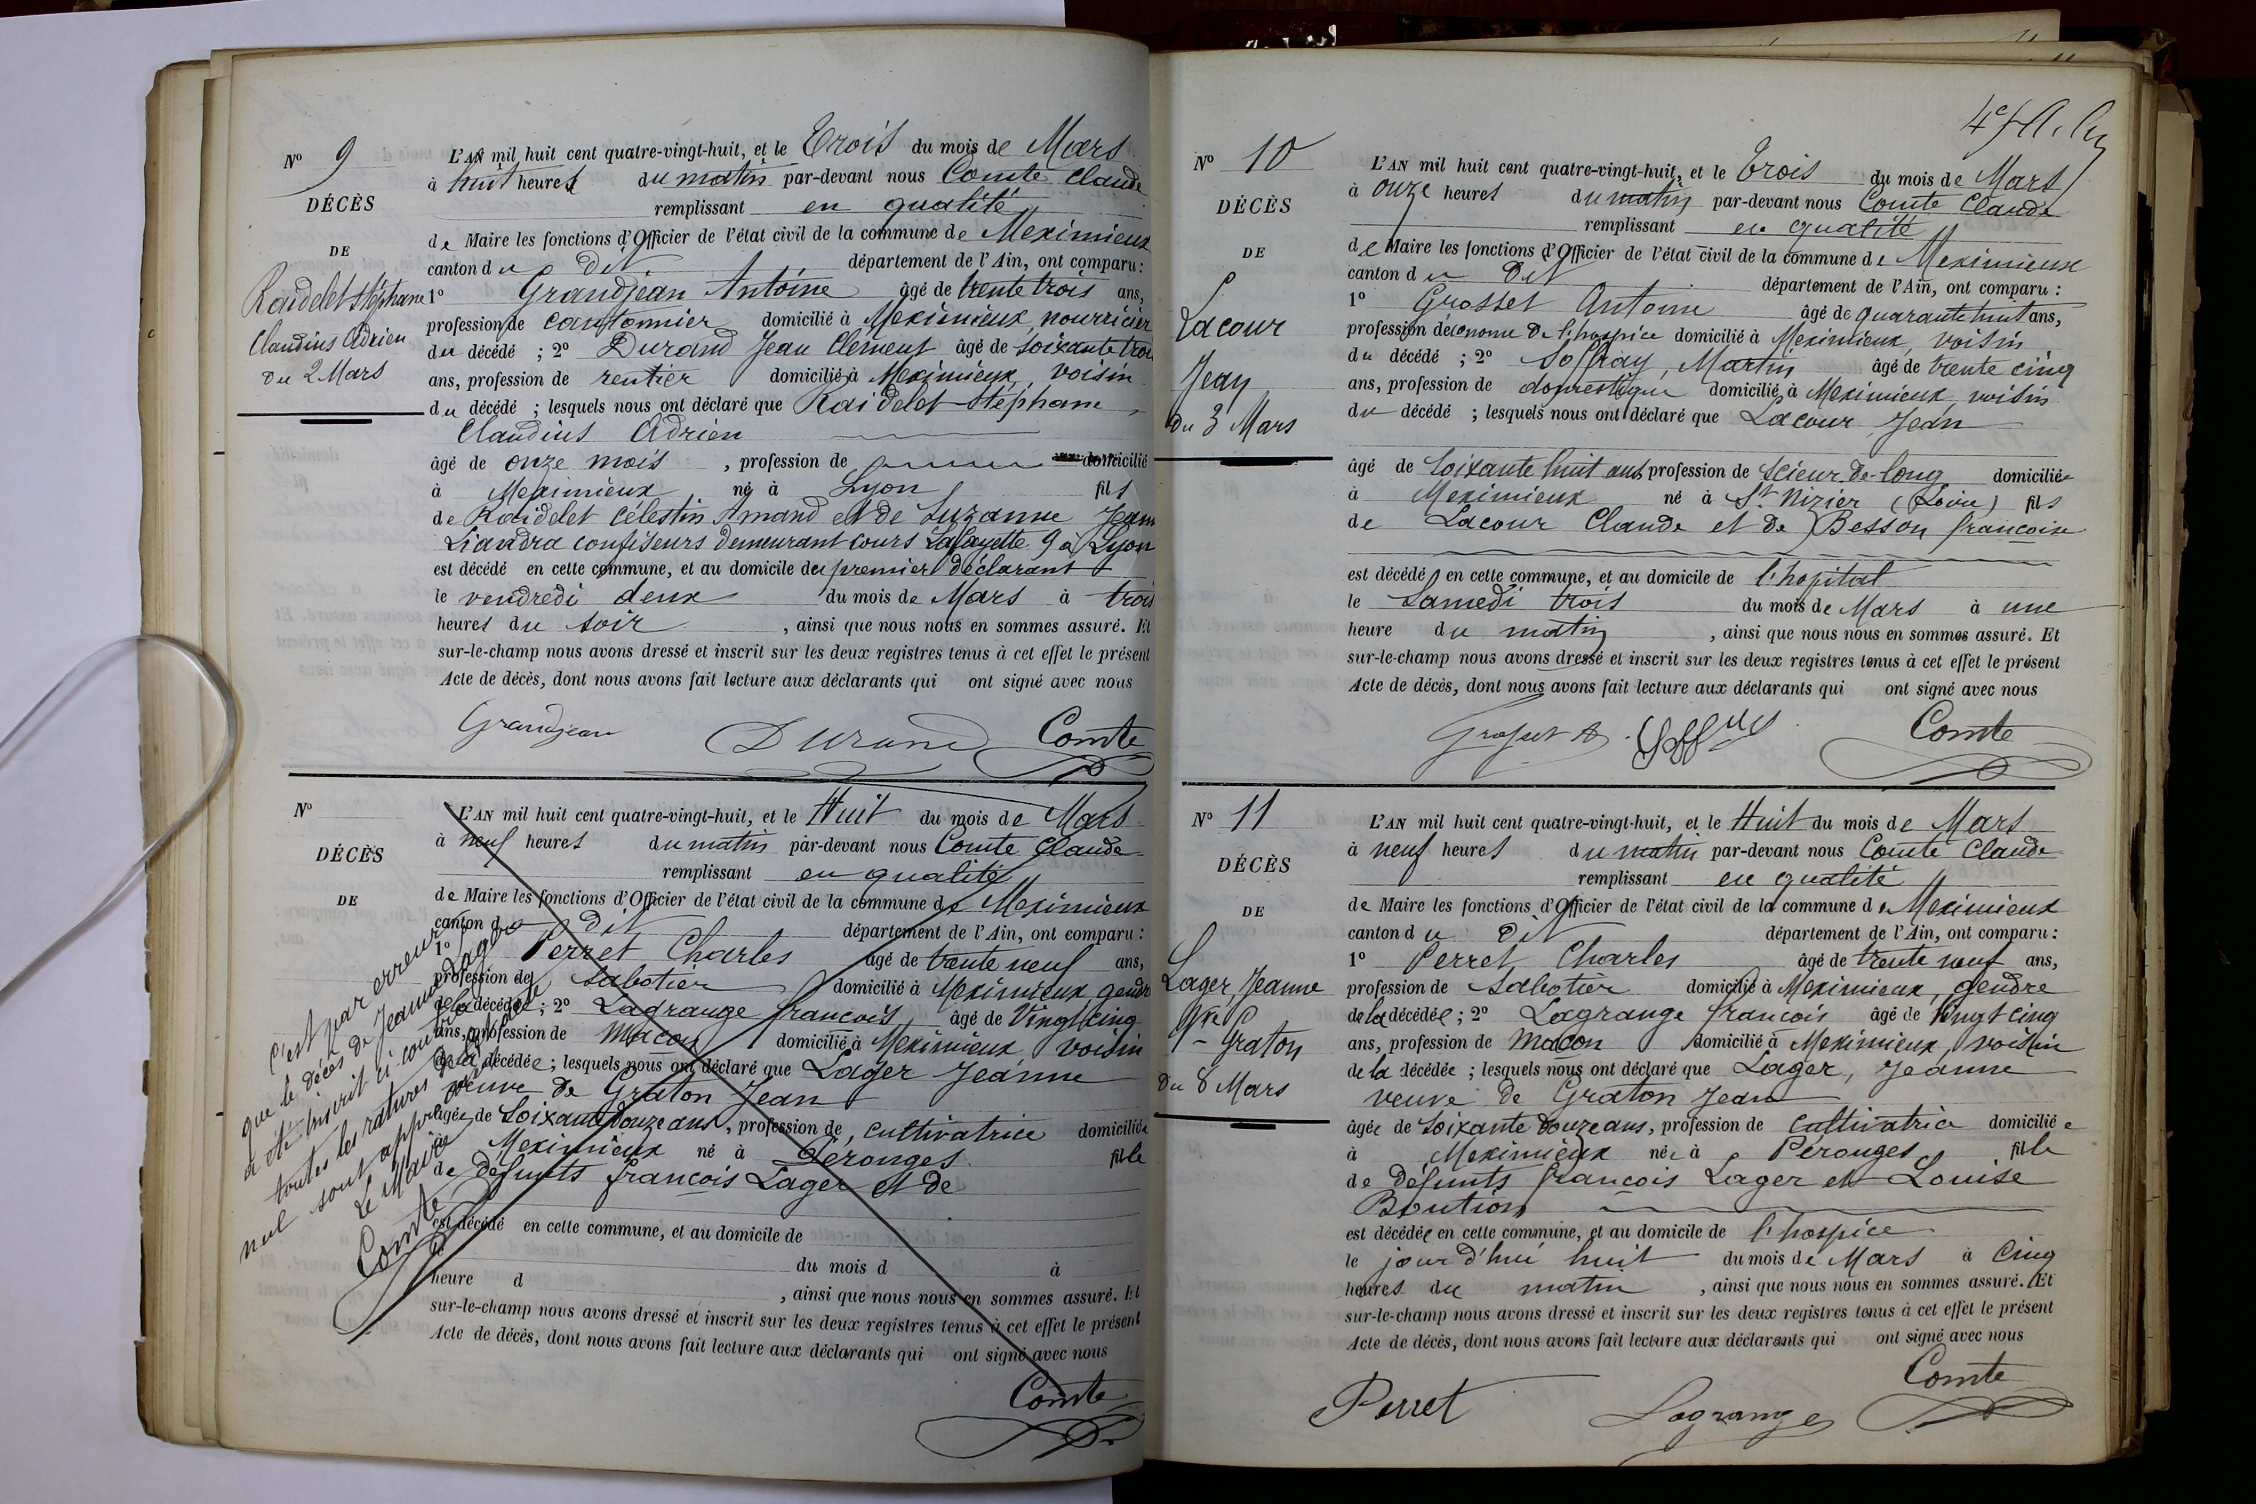 N° 9
DÉCÈS
DE
Raidelet Stéphane
Claudius Adrien
du 2 Mars
L'AN mil huit cent quatre-vingt-huit, et le Trois du mois de Mars
à huit heures du matin par-devant nous Comte Claude
remplissant en qualité
de Maire les fonctions d'Officier de l'état civil de la commune de Meximieux
canton du dit département de l'Ain, ont comparu :
1° Grandjean Antoine âgé de trente trois ans,
profession de cantonnier domicilié à Meximieux, nourricier
du décédé ; 2° Durand Jean Clément âgé de soixante trois
ans, profession de rentier domicilié à Meximieux, voisin
du décédé ; lesquels nous ont déclaré que Raidelet Stéphane,
Claudius Adrien
âgé de onze mois, profession de domicilié
à Meximieux né à Lyon fils
de Raidelet Célestin Amand et de Suzanne Jeanne
Liandra confiseurs demeurant cours Lafayette 9 à Lyon
est décédé en cette commune, et au domicile du premier déclarant
le vendredi deux du mois de Mars à trois
heures du soir, ainsi que nous nous en sommes assuré. Et
sur-le-champ nous avons dressé et inscrit sur les deux registres tenus à cet effet le présent
Acte de décès, dont nous avons fait lecture aux déclarants qui ont signé avec nous
Grandjean Durand Comte
N°
DÉCÈS
DE
L'AN mil huit cent quatre-vingt-huit, et le Huit du mois de Mars
à neuf heures du matin par-devant nous Comte Claude
remplissant en qualité
de Maire les fonctions d'Officier de l'état civil de la commune de Meximieux
canton d dit département de l'Ain, ont comparu :
1° Perret Charles âgé de trente neuf ans,
profession de sabotier domicilié à Meximieux, gendre
de la décédée ; 2° Lagrange françois âgé de Vingt cinq
ans, profession de maçon domicilié à Meximieux, voisin
de la décédée ; lesquels nous ont déclaré que Lager Jeanne
veuve de Graton Jean
âgée de soixante douze ans, profession de cultivatrice domiciliée
à Meximieux né à Pérouges fille
de défunts françois Lager et de
est décédé en cette commune, et au domicile de
le du mois d à
heure d , ainsi que nous nous en sommes assuré. Et
sur-le-champ nous avons dressé et inscrit sur les deux registres tenus à cet effet le présent
Acte de décès, dont nous avons fait lecture aux déclarants qui ont signé avec nous
Comte
C'est par erreur
que le décès de Jeanne Lager
a été inscrit ci contre
toutes les ratures
nul sont approuvées
Le Maire
Comte
N° 10
DÉCÈS
DE
Lacour
Jean
du 3 Mars
L'AN mil huit cent quatre-vingt-huit, et le Trois du mois de Mars
à onze heures du matin par-devant nous Comte Claude
remplissant en qualité
de Maire les fonctions d'Officier de l'état civil de la commune de Meximieux
canton du dit département de l'Ain, ont comparu :
1° Grosset Antoine âgé de quarante huit ans,
profession d'économe de l'hospice domicilié à Meximieux, voisin
du décédé ; 2° Soffray, Martin âgé de trente cinq
ans, profession de domestique domicilié à Meximieux, voisin
du décédé ; lesquels nous ont déclaré que Lacour Jean
âgé de soixante huit ans, profession de scieur de long domicilié
à Meximieux né à St Nizier (Loire) fils
de Lacour Claude et de Besson françoise
est décédé en cette commune, et au domicile de l'hopital
le Samedi trois du mois de Mars à une
heure du matin, ainsi que nous nous en sommes assuré. Et
sur-le-champ nous avons dressé et inscrit sur les deux registres tenus à cet effet le présent
Acte de décès, dont nous avons fait lecture aux déclarants qui ont signé avec nous
Comte
N° 11
DÉCÈS
DE
Lager, Jeanne
Vve
Graton
du 8 Mars
L'AN mil huit cent quatre-vingt-huit, et le Huit du mois de Mars
à neuf heures du matin par-devant nous Comte Claude
remplissant en qualité
de Maire les fonctions d'Officier de l'état civil de la commune de Meximieux
canton du dit département de l'Ain, ont comparu :
1° Perret Charles âgé de trente neuf ans,
profession de sabotier domicilié à Meximieux, gendre
de la décédée ; 2° Lagrange françois âgé de Vingt cinq
ans, profession de maçon domicilié à Meximieux, voisin
de la décédée ; lesquels nous ont déclaré que Lager, Jeanne
veuve de Graton Jean
âgée de soixante douze ans, profession de cultivatrice domiciliée
à Meximieux née à Pérouges fille
de défunts françois Lager et Louise
Boution
est décédée en cette commune, et au domicile de l'hospice
le jour d'hui huit du mois de Mars à cinq
heures du matin, ainsi que nous nous en sommes assuré. Et
sur-le-champ nous avons dressé et inscrit sur les deux registres tenus à cet effet le présent
Acte de décès, dont nous avons fait lecture aux déclarants qui ont signé avec nous
Perret Lagrange Comte